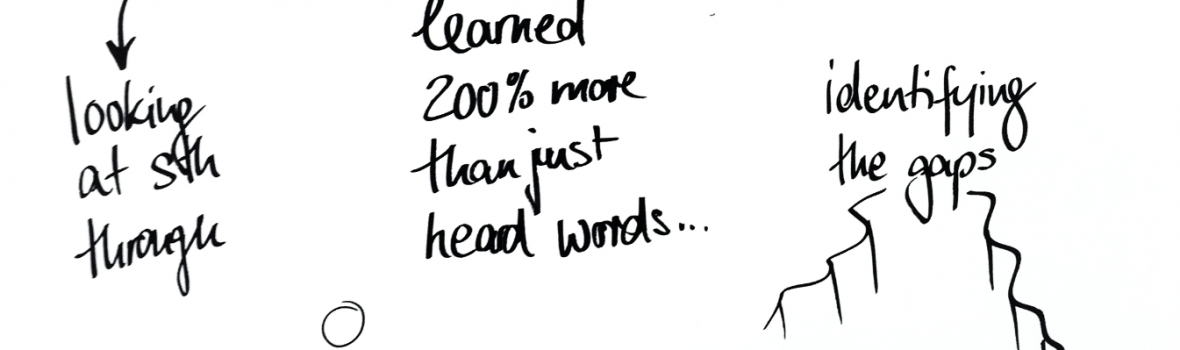 looking
at sth
through
learned
200% more
than just
head words...
identifying
the gaps